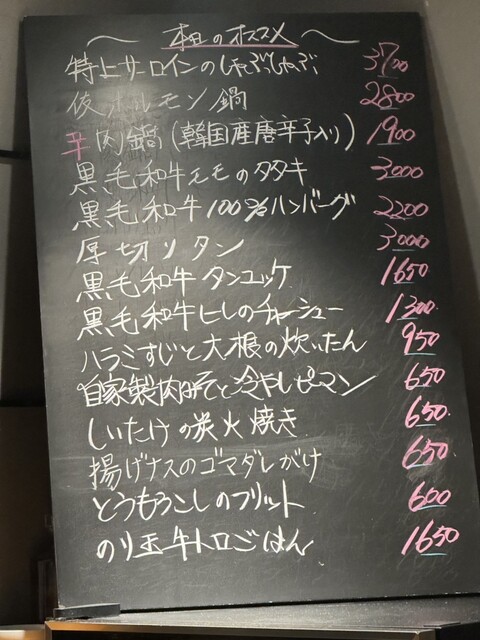 〜 本日のオススメ 〜
特上サーロインのしゃぶしゃぶ 3700
ホルモン鍋 2800
辛肉鍋(韓国産唐辛子入り) 1900
黒毛和牛モモのタタキ 3000
黒毛和牛100%ハンバーグ 2200
厚切りタン 3000
黒毛和牛タンユッケ 1650
黒毛和牛ヒレのチャーシュー 1300
ハラミすじと大根の炊いたん 950
自家製肉みそと冷やしピーマン 650
しいたけの炭火焼き 650
揚げナスのゴマダレがけ 650
とうもろこしのフリット 600
のり玉牛トロごはん 1650